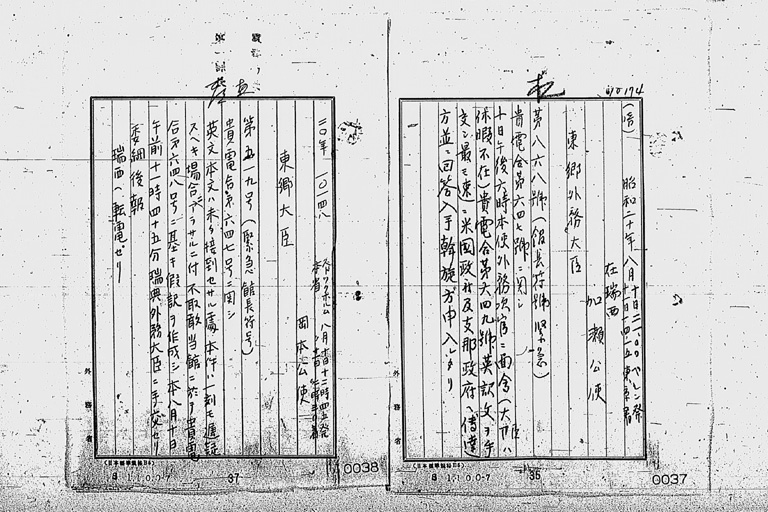 (暗)
昭和二十年八月十日二一、〇〇ベルン発
東郷外務大臣
在瑞西
加瀬公使
第八六八號(館長符號緊急)
貴電合第六四七號ニ関シ
十日午後六時本使外務次官ニ面会(大臣ハ
休暇不在)貴電合第六四九號英訳文ヲ手
交シ最モ速ニ米国政府及支那政府ヘ傳達
方並ニ回答入手斡旋方申入レタリ
(日本標準規格B5)
外務省
36
0037
二〇年
東郷大臣
岡本公使
第五一九号(緊急館長符号)
貴電合第六四七号ニ関シ
英文本文ハ未タ接到セサル處本件ハ一刻モ遅延
スヘキ場合デアラサルニ付不取敢当館ニ於テ貴電
合第六四八号ニ基キ假訳ヲ作成シ本八月十日
午前十一時四十五分瑞典外務大臣ニ手交セリ
委細後報
瑞西ヘ転電セリ
(日本標準規格B5)
外務省
37
0038